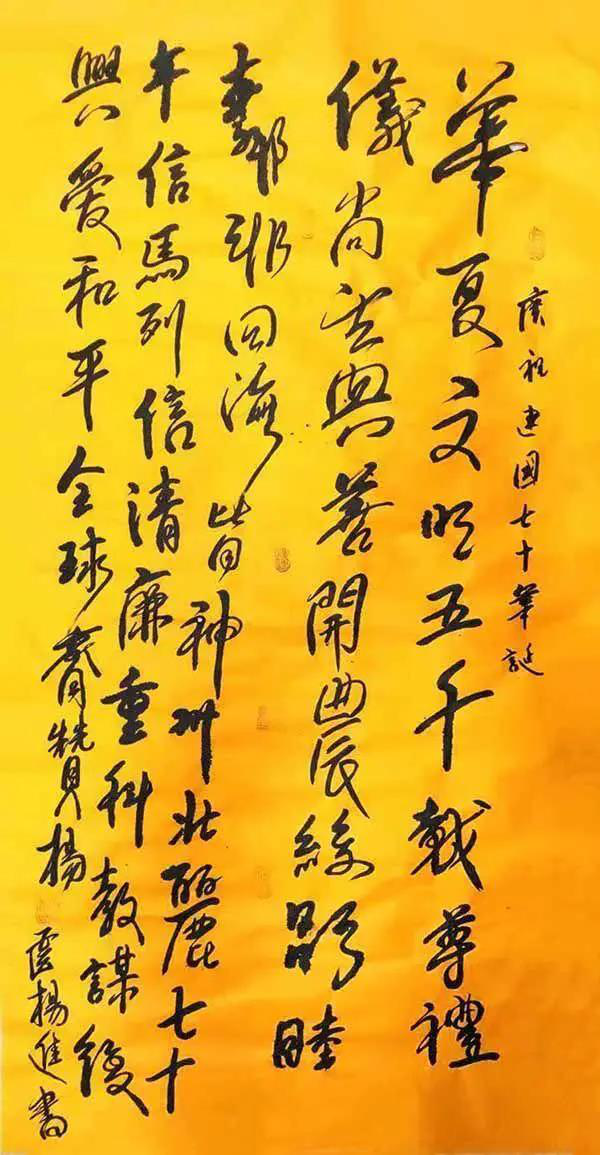 慶祝建國七十華誕
華夏文明五千載尊禮
儀尚與善開農絲路睦
四海皆神州壯麗七十
年信馬列信清廉重科教謀復
興愛和平全球齊贊揚
楊進書